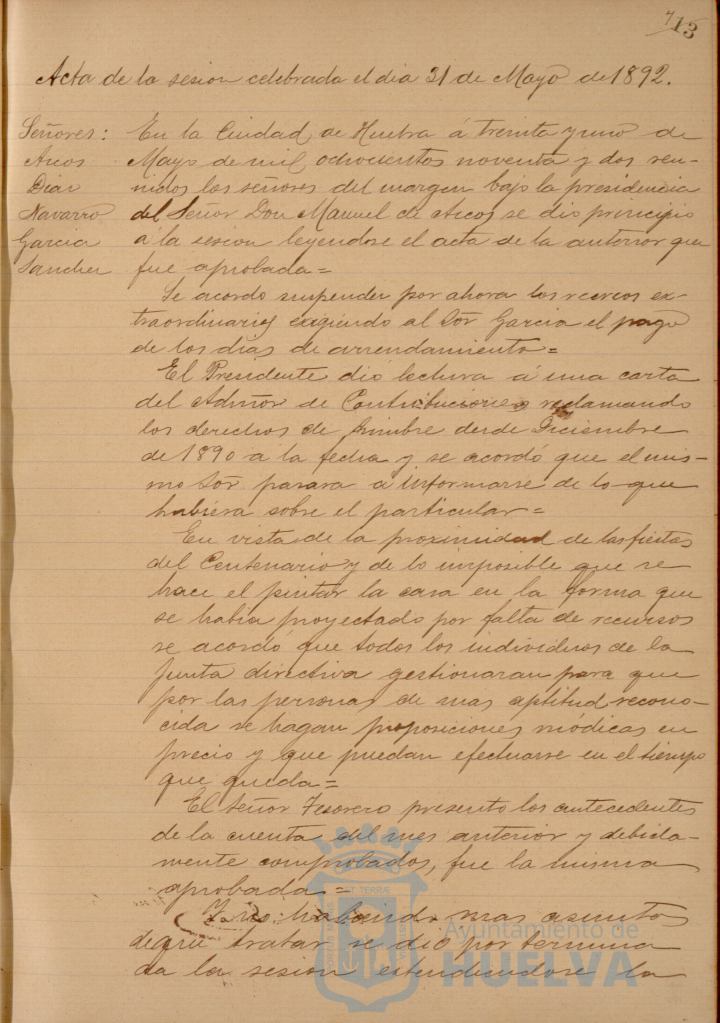 13
Acta de la sesion celebrada el dia 31 de Mayo de 1892.
Señores:
Arcos
Diaz
Navarro
Garcia
Sanchez
En la Ciudad de Huelva á treinta y uno de
Mayo de mil ochocientos noventa y dos reu-
nidos los señores del margen bajo la presidencia
del Señor Don Manuel de Arcos se dio principio
a la sesion leyendose el acta de la anterior que
fue aprobada=
Se acordo suspender por ahora los recreos ex-
traordinarios exigiendo al Sór Garcia el pago
de los dias de arrendamiento=
El Presidente dio lectura á una carta
del Admór de Contribuciones reclamando
los derechos de timbre desde Diciembre
de 1890 a la fecha y se acordó que el mis-
mo Sór pasara á informarse de lo que
hubiera sobre el particular=
En vista de la proximidad de las fiestas
del Centenario y de lo imposible que se
hace el pintar la casa en la forma que
se habia proyectado por falta de recursos
se acordó que todos los individuos de la
Junta directiva gestionaran para que
por las personas de mas aptitud recono-
cida se hagan proposiciones módicas en
precio y que puedan efectuarse en el tiempo
que queda=
El Señor Tesorero presento los antecedentes
de la cuenta del mes anterior y debida-
mente comprobados, fue la misma
aprobada=
Y no habiendo mas asuntos
de que tratar se dió por termina
da la sesion estendiendose la
Ayuntamiento de
HUELVA